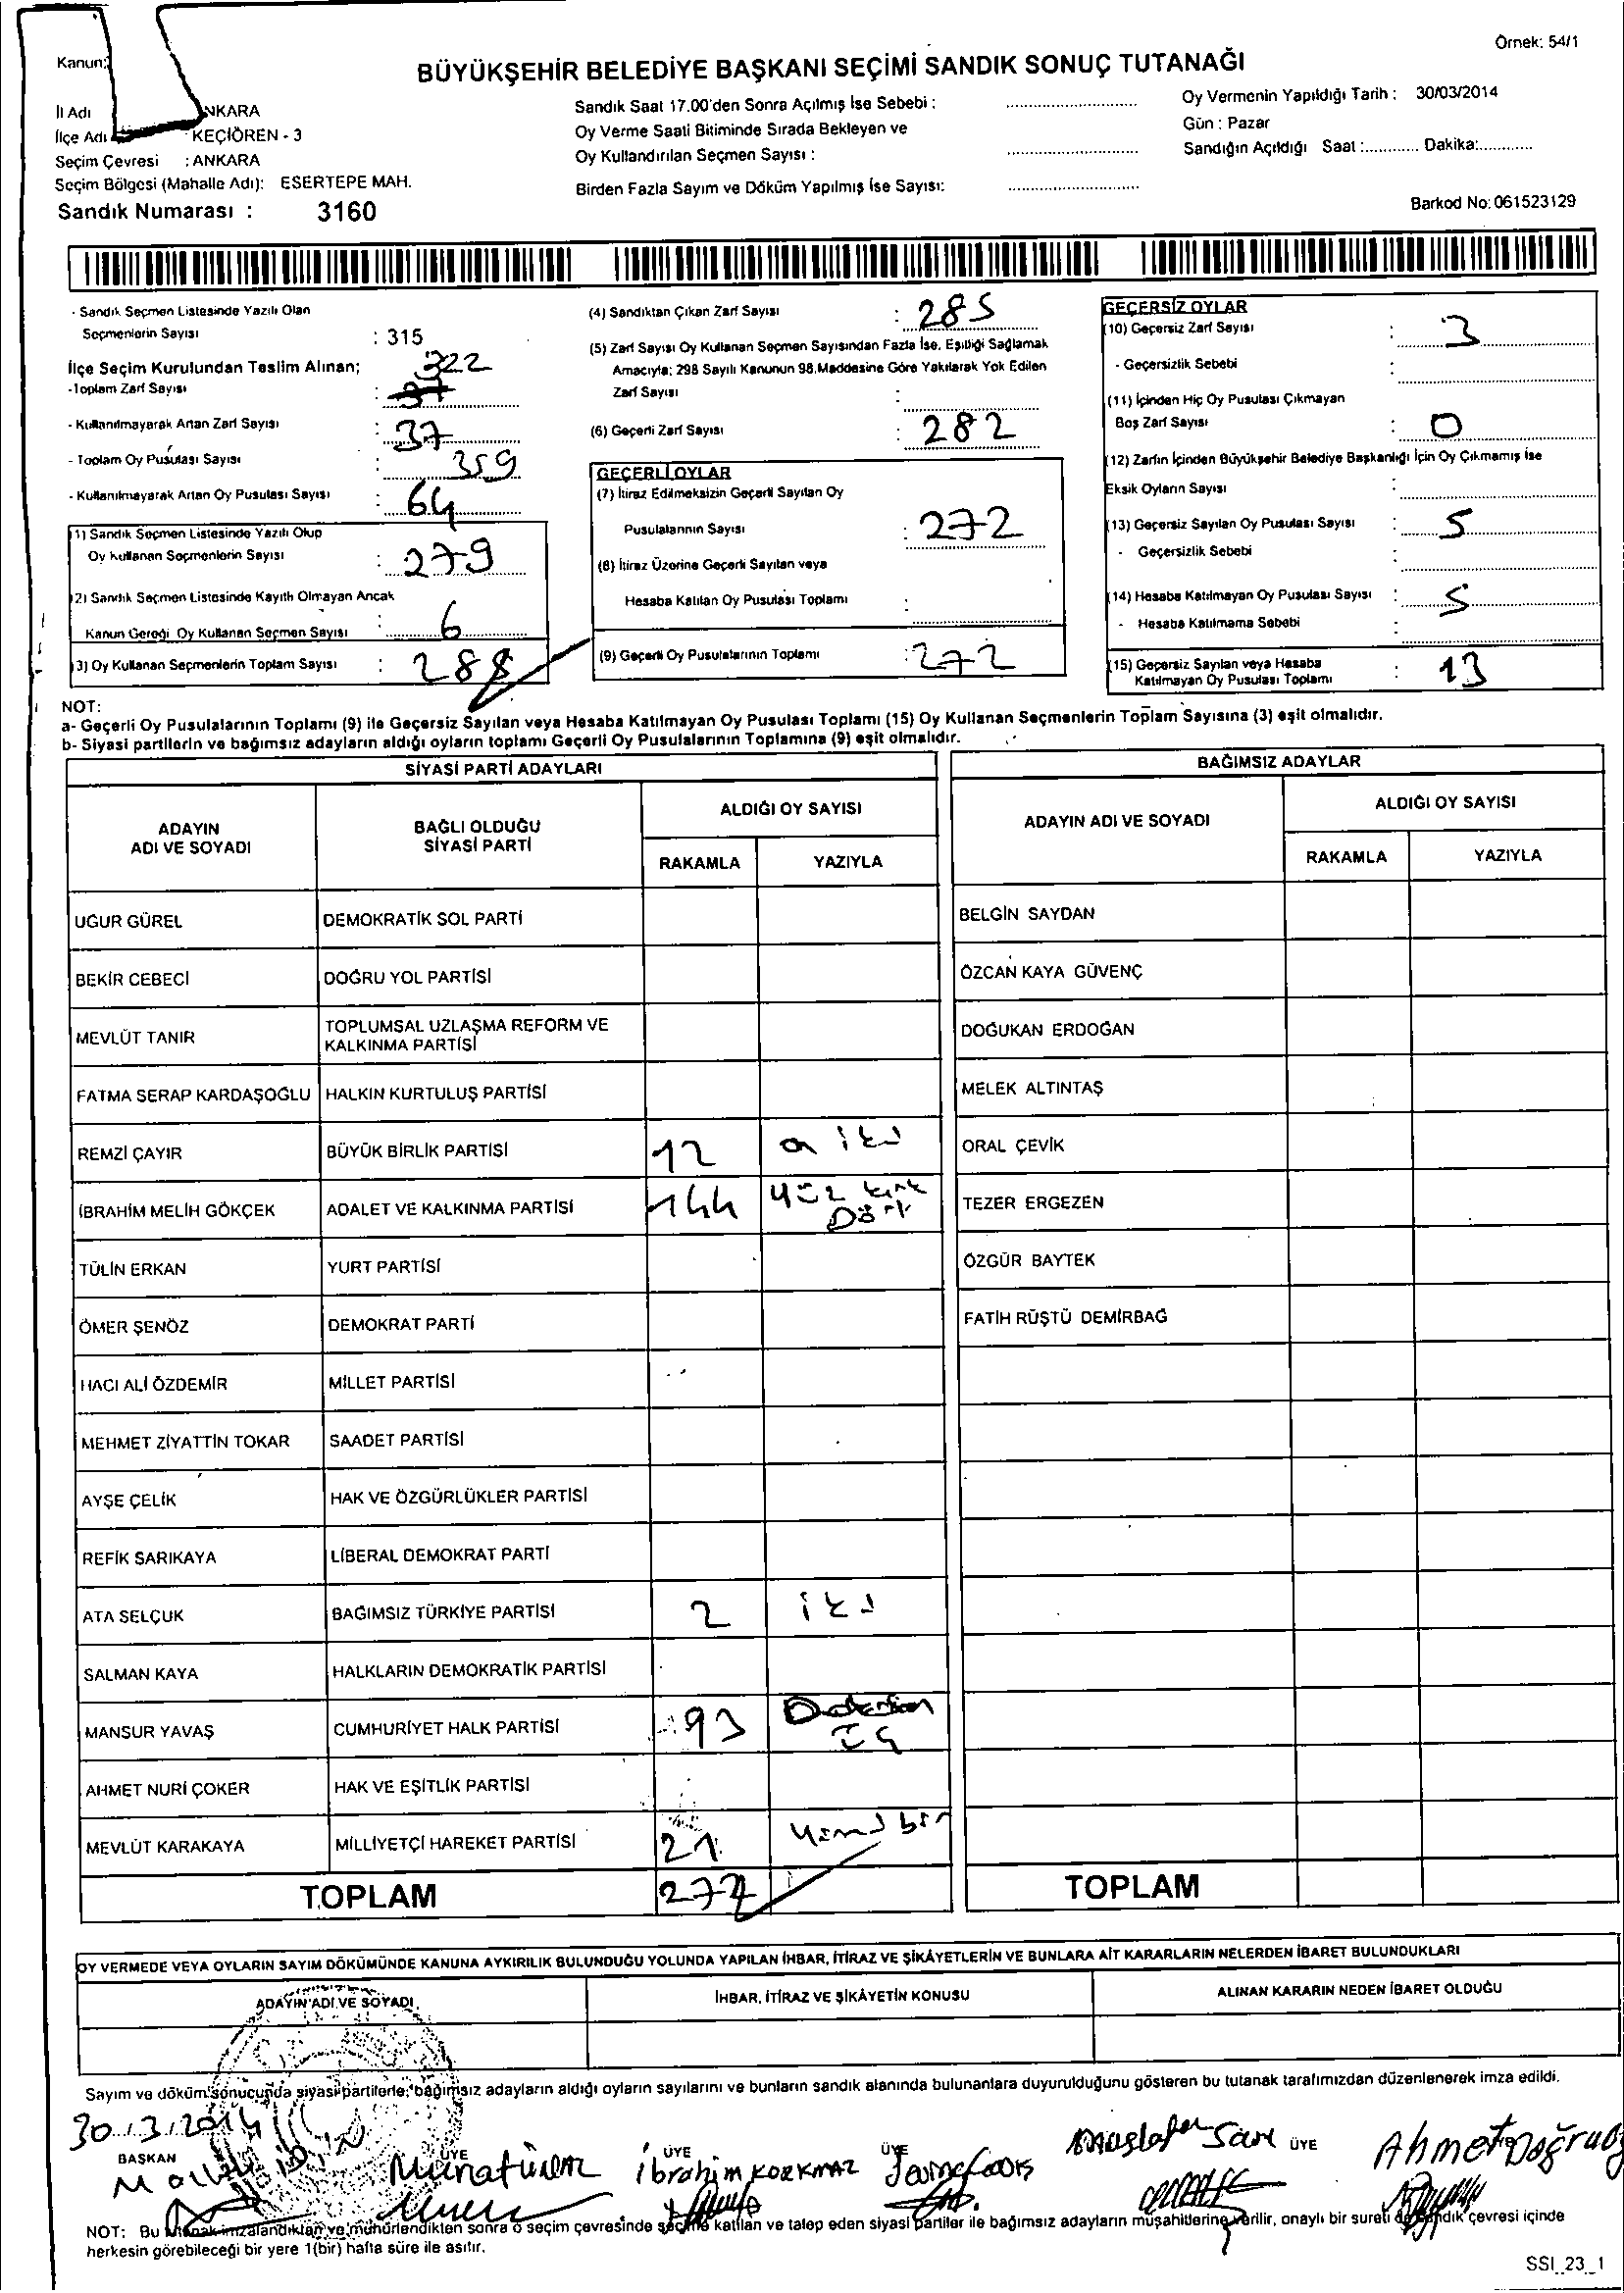 Örnek: 54/1
Kanun:
BÜYÜKŞEHİR BELEDİYE BAŞKANI SEÇİMİ SANDIK SONUÇ TUTANAĞI
İl Adı NKARA
İlçe Adı KEÇİÖREN - 3
Seçim Çevresi : ANKARA
Seçim Bölgesi (Mahalle Adı): ESERTEPE MAH.
Sandık Numarası : 3160
Sandık Saat 17.00'den Sonra Açılmış İse Sebebi :
Oy Verme Saati Bitiminde Sırada Bekleyen ve
Oy Kullandırılan Seçmen Sayısı :
Birden Fazla Sayım ve Döküm Yapılmış İse Sayısı:
Oy Vermenin Yapıldığı Tarih : 30/03/2014
Gün : Pazar
Sandığın Açıldığı Saat :............ Dakika:............
Barkod No: 061523129
- Sandık Seçmen Listesinde Yazılı Olan
Seçmenlerin Sayısı : 315
İlçe Seçim Kurulundan Teslim Alınan; 322
-Toplam Zarf Sayısı : 37
- Kullanılmayarak Artan Zarf Sayısı : 37
- Toplam Oy Pusulası Sayısı : 359
- Kullanılmayarak Artan Oy Pusulası Sayısı : 64
(1) Sandık Seçmen Listesinde Yazılı Olup
Oy Kullanan Seçmenlerin Sayısı : 279
(2) Sandık Seçmen Listesinde Kayıtlı Olmayan Ancak
Kanun Gereği Oy Kullanan Seçmen Sayısı : 6
(3) Oy Kullanan Seçmenlerin Toplam Sayısı : 288
(4) Sandıktan Çıkan Zarf Sayısı : 285
(5) Zarf Sayısı Oy Kullanan Seçmen Sayısından Fazla İse, Eşitliği Sağlamak
Amacıyla; 298 Sayılı Kanunun 98.Maddesine Göre Yakılarak Yok Edilen
Zarf Sayısı :
(6) Geçerli Zarf Sayısı : 282
GEÇERLİ OYLAR
(7) İtiraz Edilmeksizin Geçerli Sayılan Oy
Pusulalarının Sayısı : 272
(8) İtiraz Üzerine Geçerli Sayılan veya
Hesaba Katılan Oy Pusulası Toplamı :
(9) Geçerli Oy Pusulalarının Toplamı : 272
GEÇERSİZ OYLAR
(10) Geçersiz Zarf Sayısı : 3
- Geçersizlik Sebebi :
(11) İçinden Hiç Oy Pusulası Çıkmayan
Boş Zarf Sayısı : 0
(12) Zarfın İçinden Büyükşehir Belediye Başkanlığı İçin Oy Çıkmamış İse
Eksik Oyların Sayısı :
(13) Geçersiz Sayılan Oy Pusulası Sayısı : 5
- Geçersizlik Sebebi :
(14) Hesaba Katılmayan Oy Pusulası Sayısı : 5
- Hesaba Katılmama Sebebi :
(15) Geçersiz Sayılan veya Hesaba
Katılmayan Oy Pusulası Toplamı : 13
NOT:
a- Geçerli Oy Pusulalarının Toplamı (9) ile Geçersiz Sayılan veya Hesaba Katılmayan Oy Pusulası Toplamı (15) Oy Kullanan Seçmenlerin Toplam Sayısına (3) eşit olmalıdır.
b- Siyasi partilerin ve bağımsız adayların aldığı oyların toplamı Geçerli Oy Pusulalarının Toplamına (9) eşit olmalıdır.
SİYASİ PARTİ ADAYLARI
ADAYIN
ADI VE SOYADI
BAĞLI OLDUĞU
SİYASİ PARTİ
ALDIĞI OY SAYISI
RAKAMLA YAZIYLA
UĞUR GÜREL DEMOKRATİK SOL PARTİ
BEKİR CEBECİ DOĞRU YOL PARTİSİ
MEVLÜT TANIR TOPLUMSAL UZLAŞMA REFORM VE
KALKINMA PARTİSİ
FATMA SERAP KARDAŞOĞLU HALKIN KURTULUŞ PARTİSİ
REMZİ ÇAYIR BÜYÜK BİRLİK PARTİSİ 12 on iki
İBRAHİM MELİH GÖKÇEK ADALET VE KALKINMA PARTİSİ 144 yüz kırk
Dört
TÜLİN ERKAN YURT PARTİSİ
ÖMER ŞENÖZ DEMOKRAT PARTİ
HACI ALİ ÖZDEMİR MİLLET PARTİSİ
MEHMET ZİYATTİN TOKAR SAADET PARTİSİ
AYŞE ÇELİK HAK VE ÖZGÜRLÜKLER PARTİSİ
REFİK SARIKAYA LİBERAL DEMOKRAT PARTİ
ATA SELÇUK BAĞIMSIZ TÜRKİYE PARTİSİ 2 iki
SALMAN KAYA HALKLARIN DEMOKRATİK PARTİSİ
MANSUR YAVAŞ CUMHURİYET HALK PARTİSİ 93 Doksan
üç
AHMET NURİ ÇOKER HAK VE EŞİTLİK PARTİSİ
MEVLÜT KARAKAYA MİLLİYETÇİ HAREKET PARTİSİ 21 yirmi bir
TOPLAM 272
BAĞIMSIZ ADAYLAR
ADAYIN ADI VE SOYADI
ALDIĞI OY SAYISI
RAKAMLA YAZIYLA
BELGİN SAYDAN
ÖZCAN KAYA GÜVENÇ
DOĞUKAN ERDOĞAN
MELEK ALTINTAŞ
ORAL ÇEVİK
TEZER ERGEZEN
ÖZGÜR BAYTEK
FATİH RÜŞTÜ DEMİRBAĞ
TOPLAM
OY VERMEDE VEYA OYLARIN SAYIM DÖKÜMÜNDE KANUNA AYKIRILIK BULUNDUĞU YOLUNDA YAPILAN İHBAR, İTİRAZ VE ŞİKÂYETLERİN VE BUNLARA AİT KARARLARIN NELERDEN İBARET BULUNDUKLARI
ADAYIN ADI VE SOYADI İHBAR, İTİRAZ VE ŞİKÂYETİN KONUSU ALINAN KARARIN NEDEN İBARET OLDUĞU
Sayım ve döküm sonucunda siyasi partilerle, bağımsız adayların aldığı oyların sayılarını ve bunların sandık alanında bulunanlara duyurulduğunu gösteren bu tutanak tarafımızdan düzenlenerek imza edildi.
30.3.2014
BAŞKAN ÜYE ÜYE ÜYE ÜYE
İbrahim KORKMAZ Mustafa Sarı Ahmet Doğru
NOT: Bu tutanak imzalandıktan ve mühürlendikten sonra o seçim çevresinde seçime katılan ve talep eden siyasi partiler ile bağımsız adayların müşahitlerine verilir, onaylı bir sureti de sandık çevresi içinde
herkesin görebileceği bir yere 1(bir) hafta süre ile asılır.
SSI_23_1